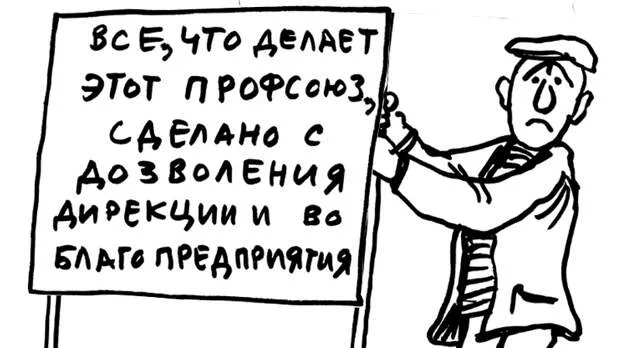 ВСЕ, ЧТО ДЕЛАЕТ
ЭТОТ ПРОФСОЮЗ,
СДЕЛАНО С
ДОЗВОЛЕНИЯ
ДИРЕКЦИИ И ВО
БЛАГО ПРЕДПРИЯТИЯ